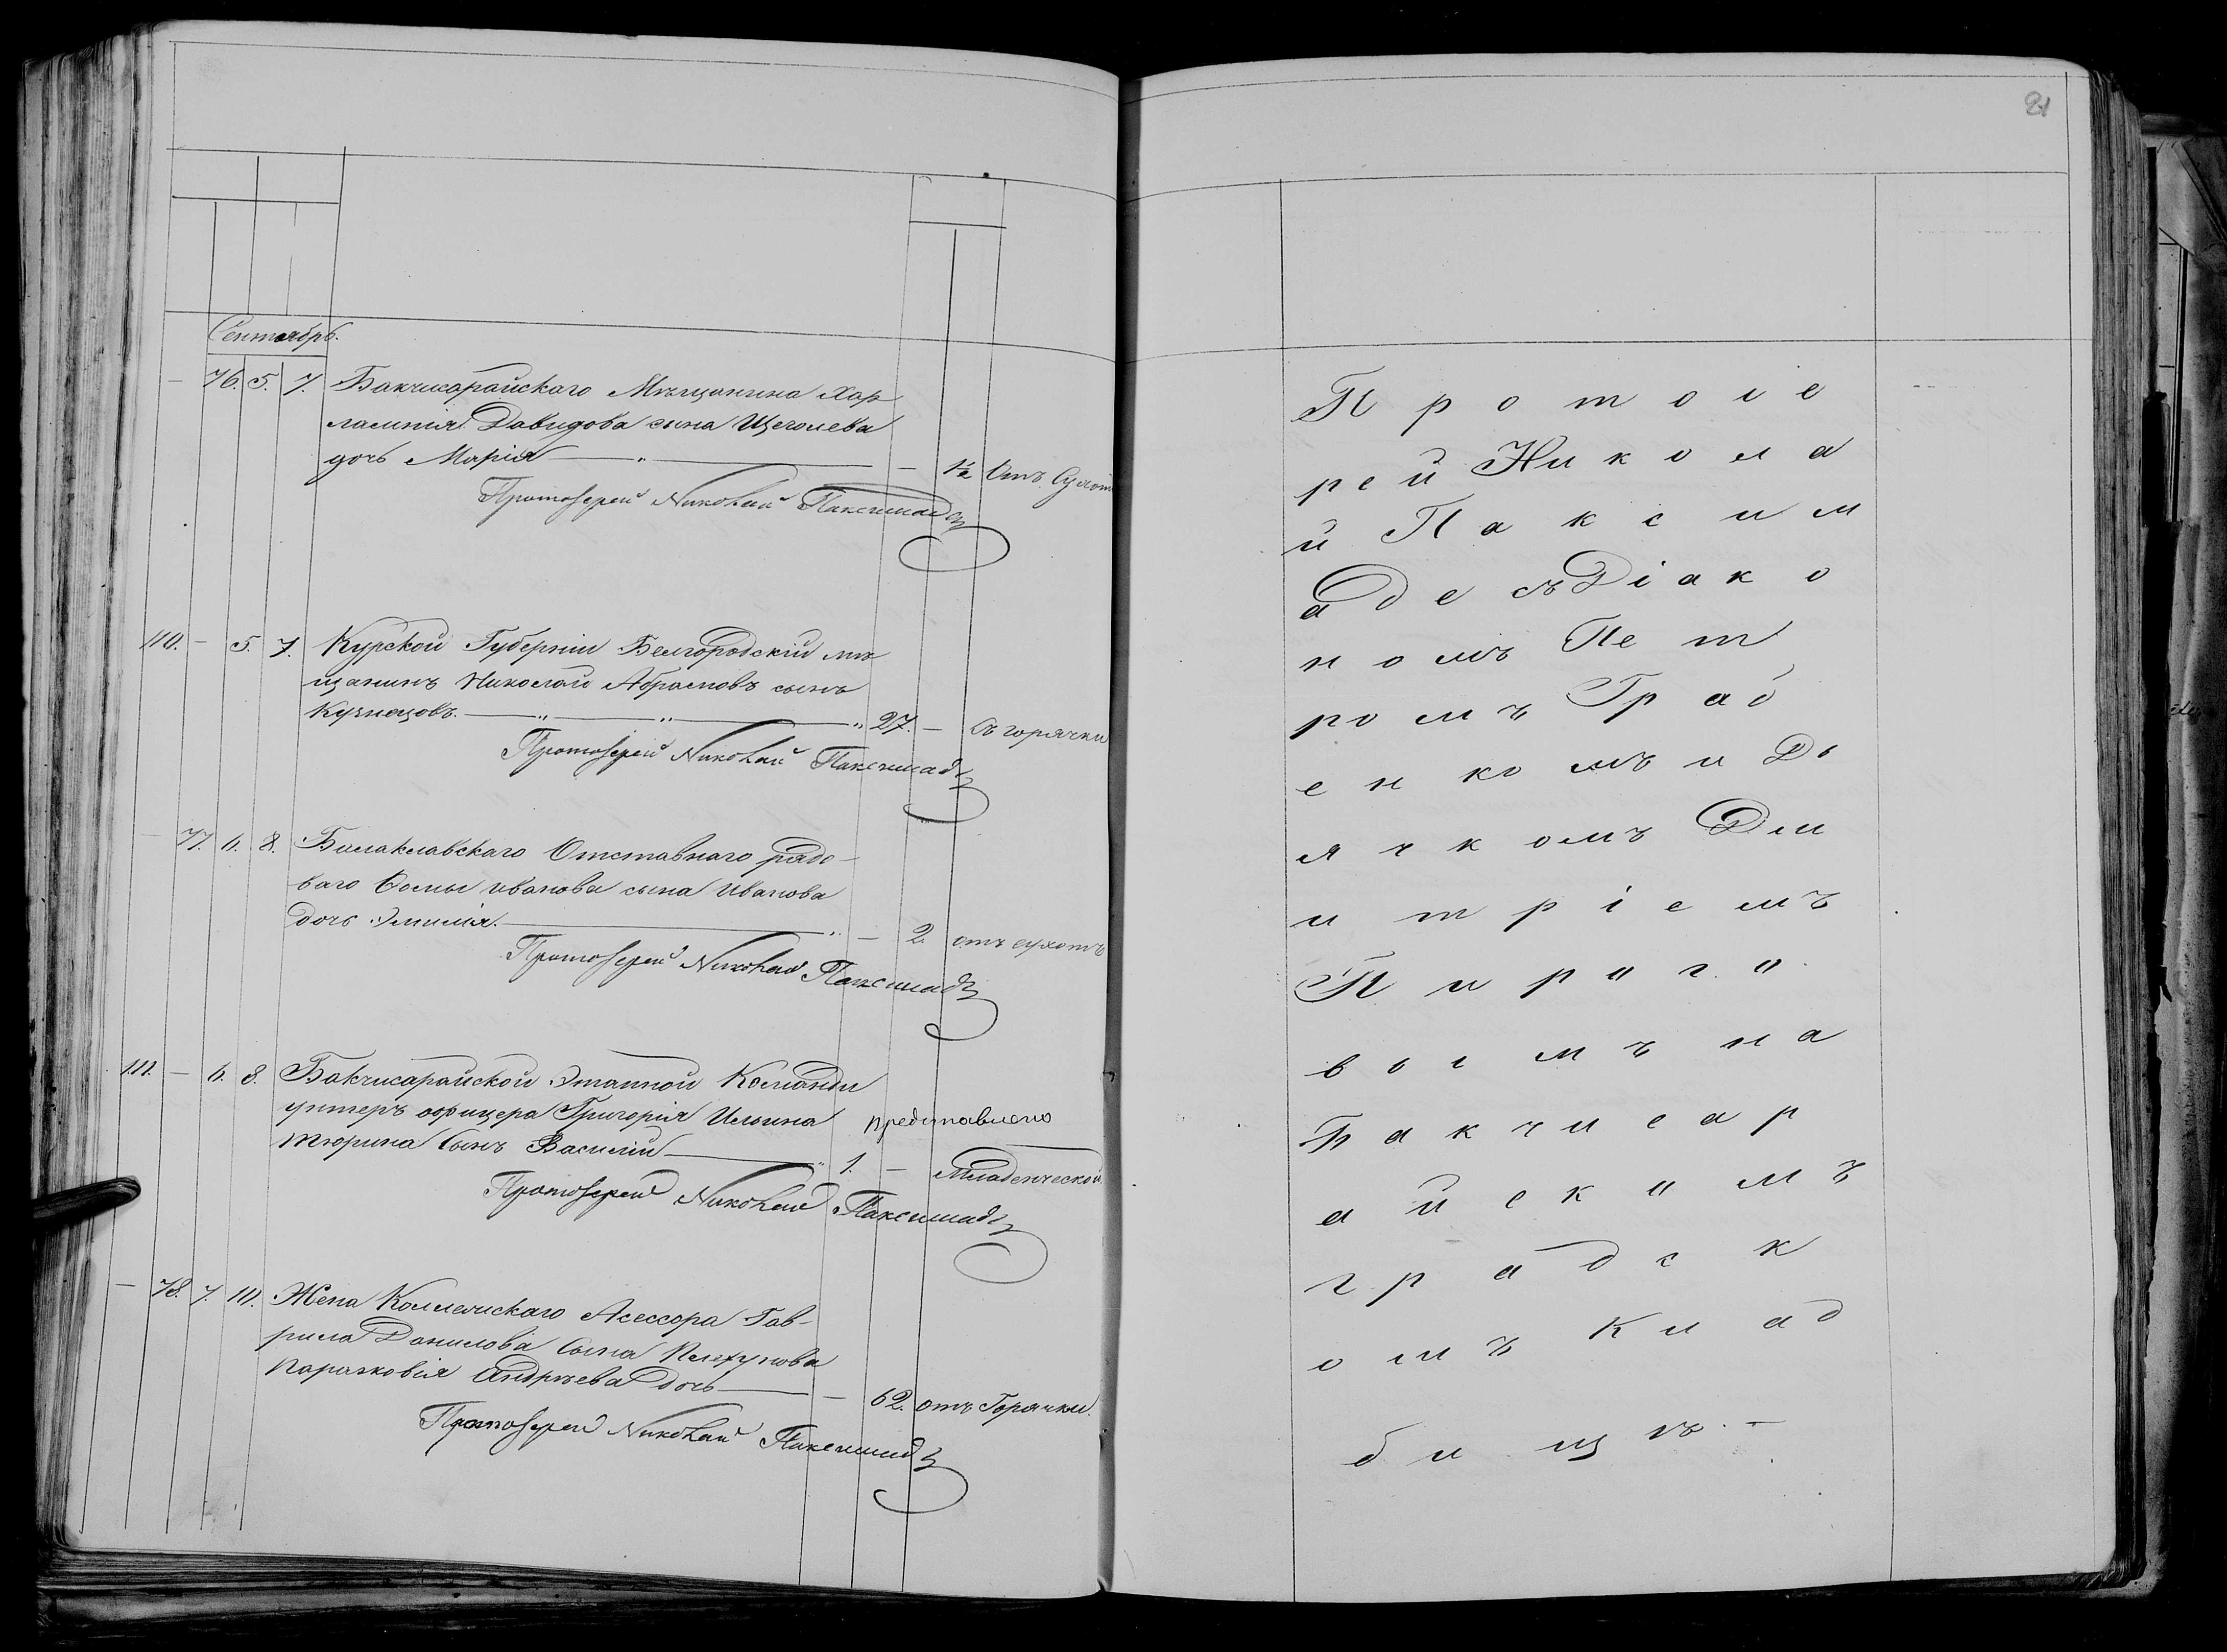 21
Сентябрь.
— 76. 5. 7. Бакчисарайскаго Мѣщанина Хар
лампія Давидова сына Щеголева
дочь Марія — „ — — 1½ Отъ Сухот
Протоіерей Николай Паксимадъ
110. — 5. 7. Курской Губерніи Белгородскій мѣ
щанинъ Николай Абрамовъ сынъ
Кузнецовъ. — „ — „ — „ 27. — Съ горячки
Протоіерей Николай Паксимадъ
— 77. 6. 8. Балаклавскаго Отставнаго рядо-
ваго Ѳомы Иванова сына Иванова
дочь Эмилія. — „ — 2. отъ сухотъ
Протоіерей Николай Паксимадъ
111. — 6. 8. Бакчисарайской Этапной Команды
унтеръ офицера Григорія Ильина представлено
Тюрина Сынъ Василій — „ 1. — Младенческой
Протоіерей Николай Паксимадъ
— 78. 7. 10. Жена Коллежскаго Асессора Гав-
рила Данилова Сына
Парасковія Андрѣева дочь — — 62. отъ Горячки.
Протоіерей Николай Паксимадъ
П р о т о і е
р е й Н и к о л а
й П а к с и м
а д е съ Д і а к о
н о мъ П е т
р о м ъ Г р а б
е н к о мъ и Дь
я ч к о мъ Д м
и т р і е мъ
П и р о г о
в ы м ъ н а
Б а к ч и с а р
а й с к о м ъ
г р а д с к
о м ъ К л а д
б и щ ѣ. —